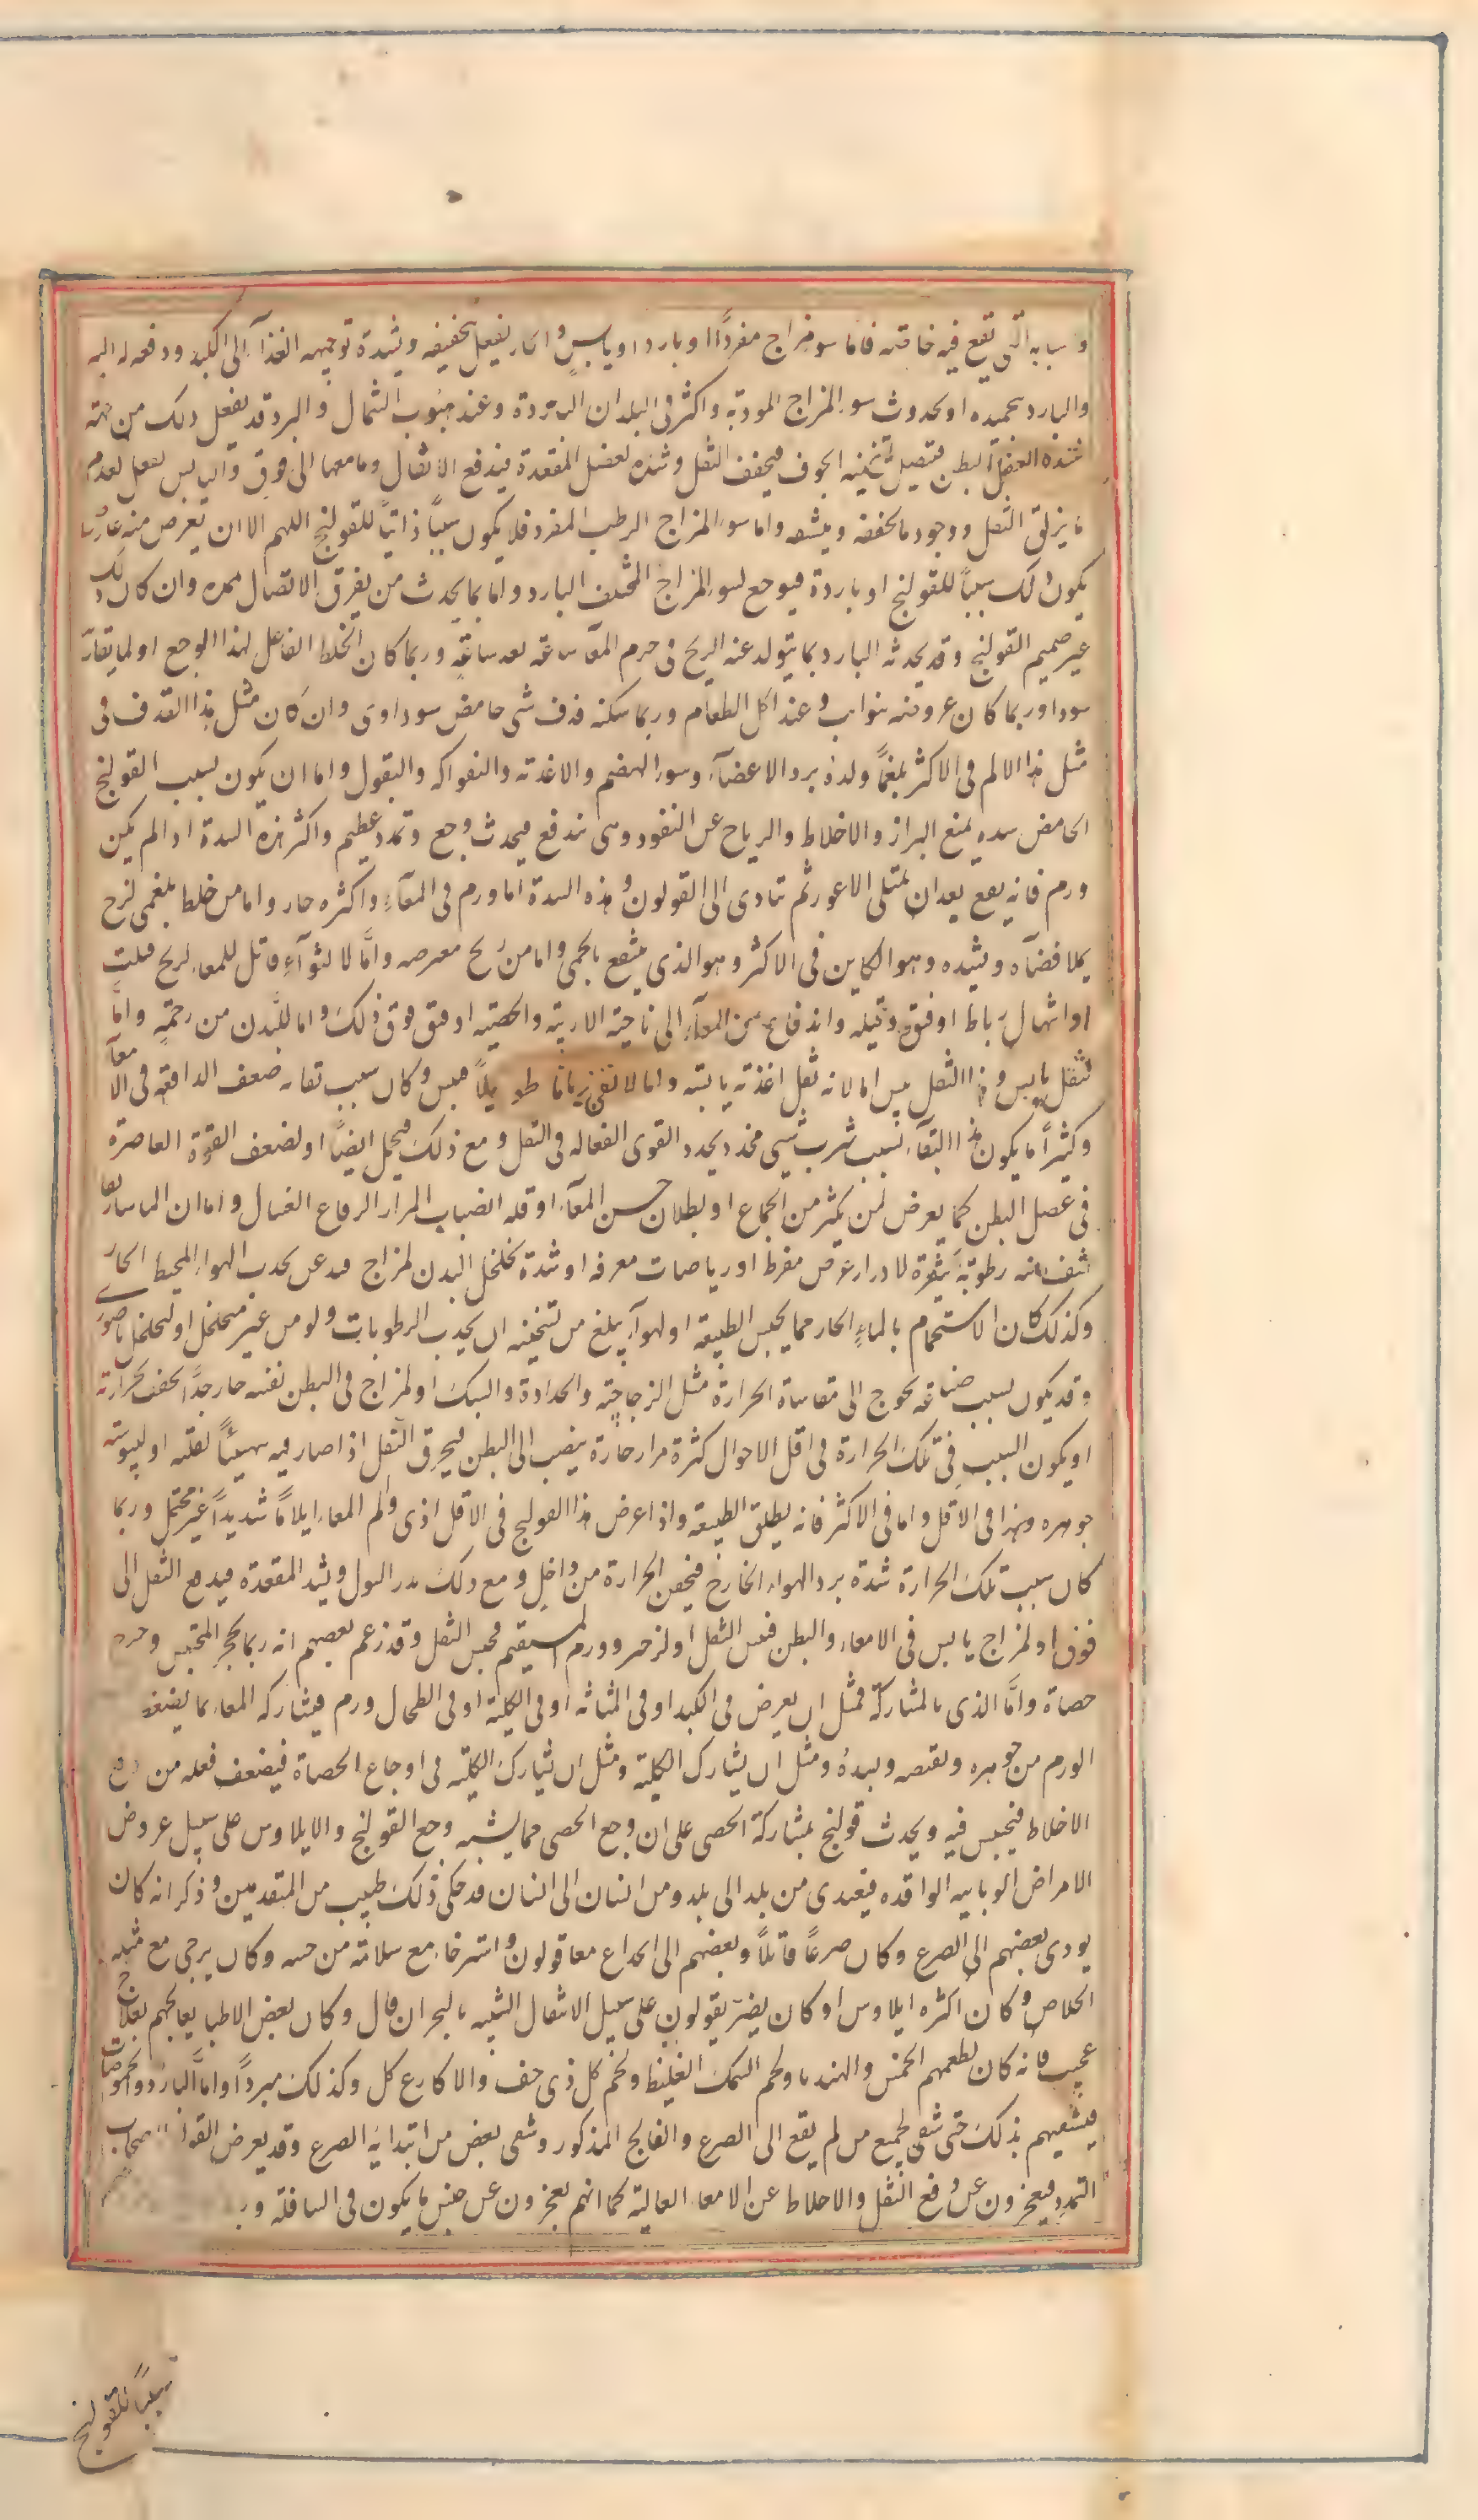 واسبابه التى تقع فيه خاصته فاما سو مزاج مفردًا او بارد او يابس والحار يفعل بتجفيفه وبشدة توجيهه الغذآ الى الكبد ودفعه له اليه
والبارد بجميده او بحدوث سوء المزاج الموديه واكثر فى البلدان الباردة وعند هبوب الشمال والبرد قد يفعل ذلك من جهة
شده العضل البطن فتصيل تسخينه الجوف فيجفف الثفل وشده لعضل المقعدة فيدفع الاثفال وما معها الى فوق واليابس يفعل لعدم
ما يزلق الثفل ووجود ما يجففه وينشفه واما سوء المزاج الرطب المفرد فلا يكون سببًا ذاتيًا للقولنج اللهم الا ان يعرض منه عارض
يكون ذلك سببًا للقولنج او باردة فيوجع لسوء المزاج المختلف البارد واما بما يحدث من تفرق الاتصال وان كان ذلك
غير صميم القولنج وقد يحدثه البارد بما يتولد عنه الريح فى جرم المعآ ساعة بعد ساعةٍ وربما كان الخلط الفاعل لهذا الوجع
سودا وربما كان عروضه بنوايب وعند اكل الطعام وربما سكنه قذف شى حامض سوداوى وان كان مثل هذا القذف فى
مثل هذا الالم فى الاكثر بلغمًا ولده برد الاعضآء وسوء الهضم والاغذية والفواكه والبقول واما ان يكون بسبب القولنج
الحامض سده يمنع البراز والاخلاط والرياح عن النفود وهى تندفع فيحدث وجع وتمدد عظيم واكثر هذه السدة اذا لم يكن
ورم فانه يقع بعد ان يمتلى الاعور ثم تتادى الى القولون وهذه السدة اما ورم فى المعآء واكثره حار واما من خلط بلغمى لزج
يملا فضآه ويسده وهو الكاين فى الاكثر وهو الذى ينتفع بالحمى واما من ريح معترضه وامّا لالتوآءِ فاتل للمعاء لريح فتلت
او انتهاك رباط او فتق وقيله واندفاع من المعآء الى ناحية الاربية والخصية او فتق فوق ذلك واما للدن من رحمةٍ وامّا
لثفل يابس وهذا الثفل يبس اما لانه ثفل اغذية يابسة واما لانه بقى زمانًا طويلًا فيبس وكان سبب بقائه ضعف الدافعة فى الامعآء
وكثيرًا ما يكون هذا البقآء بسبب شرب شى مخدر يخدر القوى الفعاله فى الثفل ومع ذلك فيجمل ايضًا او لضعف القوة العاصرة
فى عضل البطن كما يعرض لمن يكثر من الجماع او بطلان حسن المعآء او قله انصباب المرار الدفاع الغسال واما ان الماساريقا
تنشف منه رطوبة كثيرة لادرار عرض مفرط او رياضات معرقه او شدة تخلخل البدن لمزاج فيه عن بجذب الهواء المحيط الحار
وكذلك كان الاستحمام بالماءِ الحار مما يحبس الطبيعه او لهوآء يبلغ من تسخينه ان يجذب الرطوبات ولو من غير متخلخل
وقد يكون بسبب صناعة تحوج الى مقاساة الحرارة مثل الزجاجية والحدادة والسبك او لمزاج فى البطن نفسه حار جدًا يجفف بحرارته
او يكون السبب فى تلك الحرارة فى اقل الاحوال كثرة مرار حارة ينصب الى البطن فيحرق الثفل اذا صار فيه شيئًا لقلته او ليبوسته
جوهره وهذا فى الاقل واما فى الاكثر فانه يطلق الطبيعه واذا عرض هذا القولنج فى الاقل اذى والم المعاء ايلامًا شديدًا غير محتمل وربما
كان سبب تلك الحرارة شدة برد الهواء الخارج فيحقن الحرارة من داخل ومع ذلك يدر البول ويشد المقعدة فيدفع الثفل الى
فوق او لمزاج يابس فى الامعاء والبطن فيبس الثفل او لزحير وورم المستقيم فحبس الثفل وقد زعم بعضهم انه ربما تحجر المحتبس وخرج
حصاة وامّا الذى بالمشاركة فمثل ان يعرض فى الكبد او فى المثانه او فى الكلية او فى الطحال ورم فيشاركه المعاء بما يضغط
الورم من جوهره ويقبضه ويسده ومثل ان يشارك الكلية ومثل ان يشارك الكلية فى اوجاع الحصاة فيضعف فعله من دفع
الاخلاط فيحتبس فيه ويحدث قولنج بمشاركة الحصى على ان وجع الحصى مما يشبه وجع القولنج والايلاوس على سبيل عروض
الامراض الوبائيه الوافده فيعدى من بلد الى بلد ومن انسان الى انسان قد حكى ذلك طبيب من المتقدمين وذكر انه كان
يودى بعضهم الى الصرع وكان صرعًا قاتلًا وبعضهم الى انخلاع معا قولون واسترخاء مع سلامة من حسه وكان يرجى مع مثله
الخلاص وكان اكثره ايلاوس او كان يصير بقولون على سبيل الانتقال الشبيه بالبحران قال وكان بعض الاطبا يعالجهم بعلاج
عجيب فانه كان يطعمهم الخس والهندبا ولحم السمك الغليظ ولحم كل ذى خف والاكارع كل وكذلك مبردًا وامّا البارد والحموضات
فيشفيهم بذلك حتى شفى جميع من لم يقع الى الصرع والفالج المذكور وشفى بعض من ابتدا به الصرع وقد يعرض القولنج
التمدد فيعجزون عن دفع الثفل والاخلاط عن الامعاء العالية كما انهم يعجزون عن حبس ما يكون فى السافلة
سببًا للقولنج